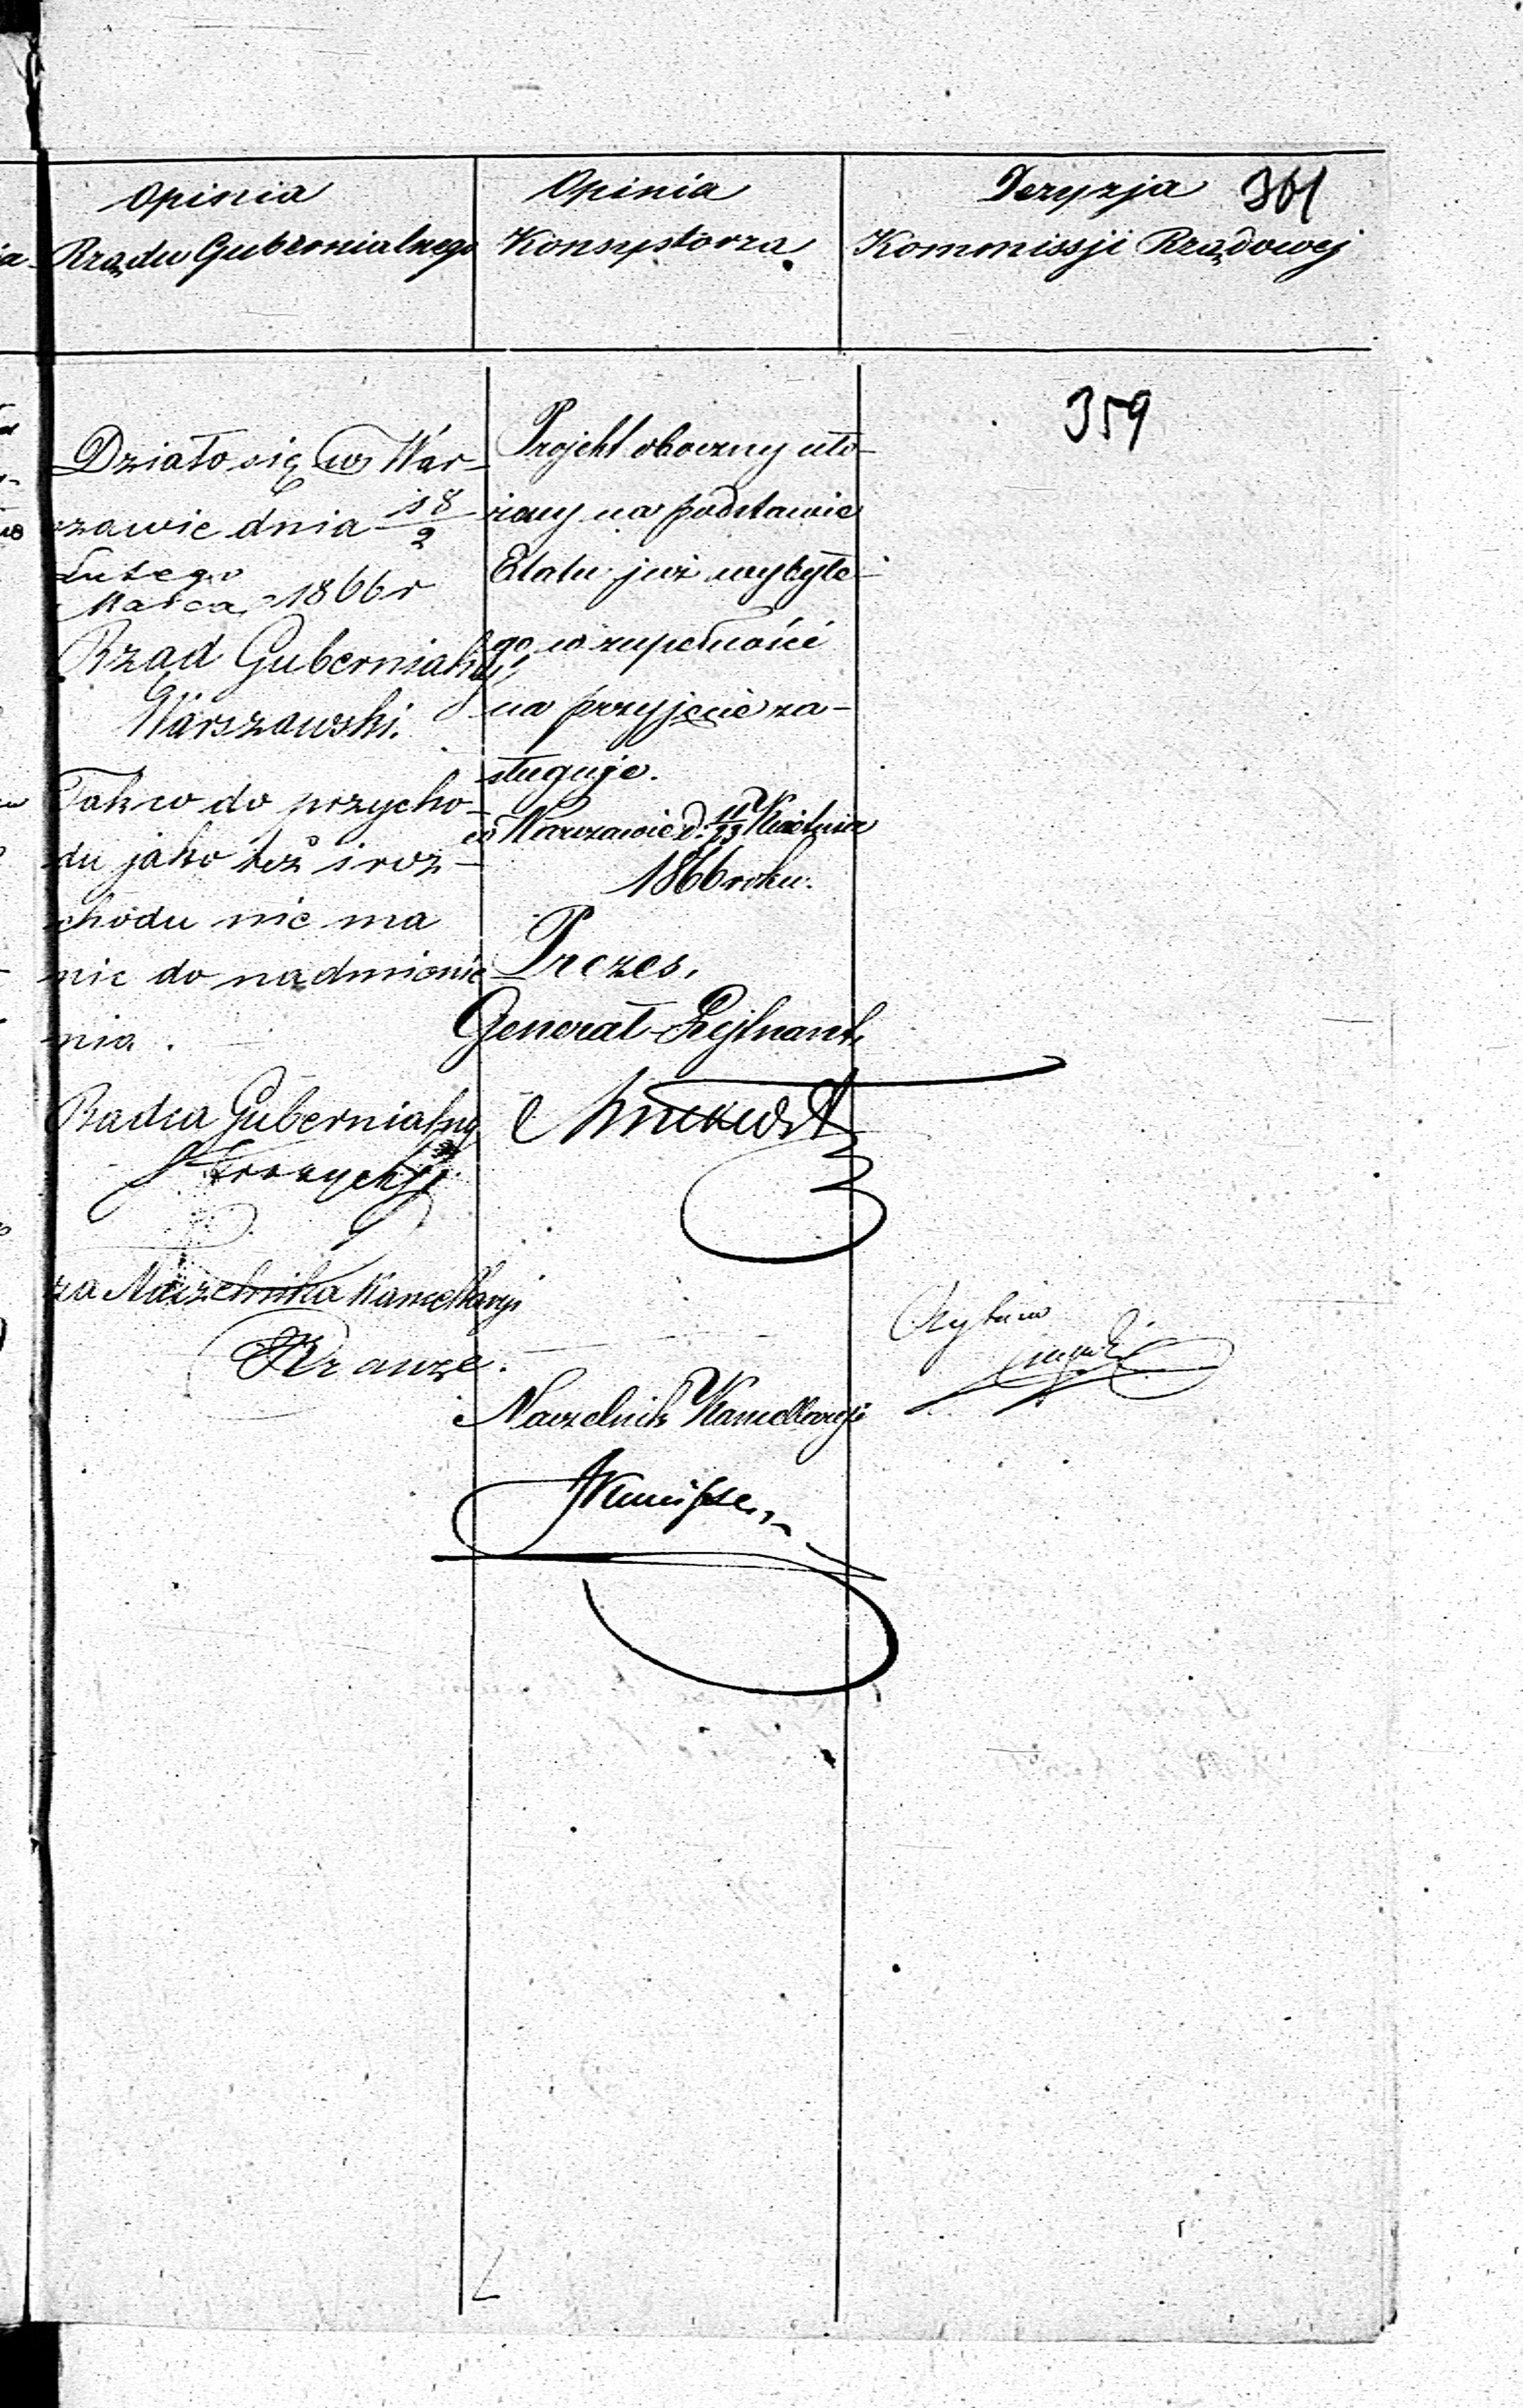 Opinia
Rządu Gubernialnego
Opinia
Konsystorza
Dezyzja 361
Kommissji Rządowej
359
Działo się w War-
szawie dnia 18/2
Lutego/Marca 1866 r
Rząd Gubernialny
Warszawski.
Tak co do przycho-
du jako też i roz-
chodu nie ma
nic do nadmienie
nia.
Radca Gubernialny
za Naczelnika Kancellaryi
Krauze.
Projekt oboczny uło-
żony na podstawie
Etatu już wybyłe-
go w zupełności
na przyjęcie za-
sługuje.
w Warszawie d. 11/23 Kwietnia
1866 roku.
Prezes,
Generał-Lejtnant,
Naczelnik Kancellaryi